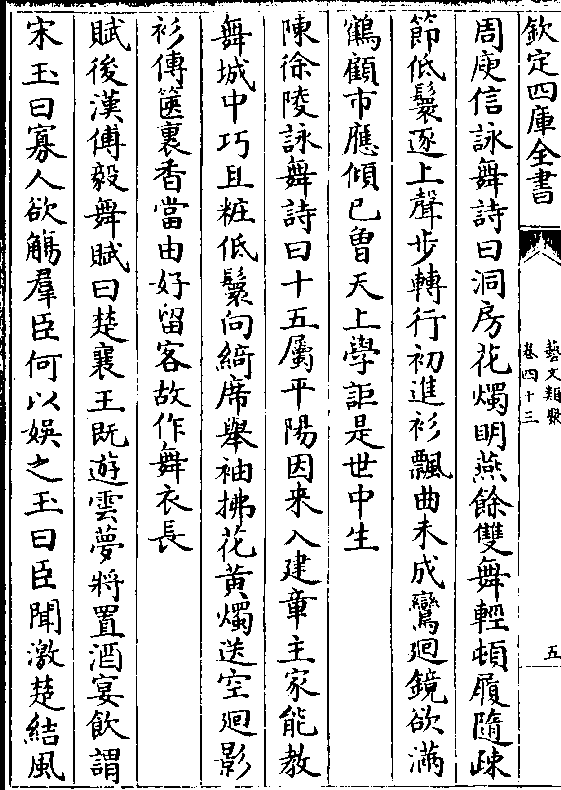 欽定四庫全書
藝文類聚
卷四十三
五
周庾信詠舞詩曰洞房花燭明燕餘雙舞輕頓履隨疎
節低鬟逐上聲步轉行初進衫飄曲未成鸞廻鏡欲滿
鶴顧市應傾已曽天上學詎是世中生
陳徐陵詠舞詩曰十五屬平陽因來入建章主家能教
舞城中巧且粧低鬟向綺席舉袖拂花黄燭送空廻影
衫傳篋裏香當由好留客故作舞衣長
賦後漢傅毅舞賦曰楚襄王既遊雲夢將置酒宴飲謂
宋玉曰寡人欲觴羣臣何以娯之玉曰臣聞激楚結風